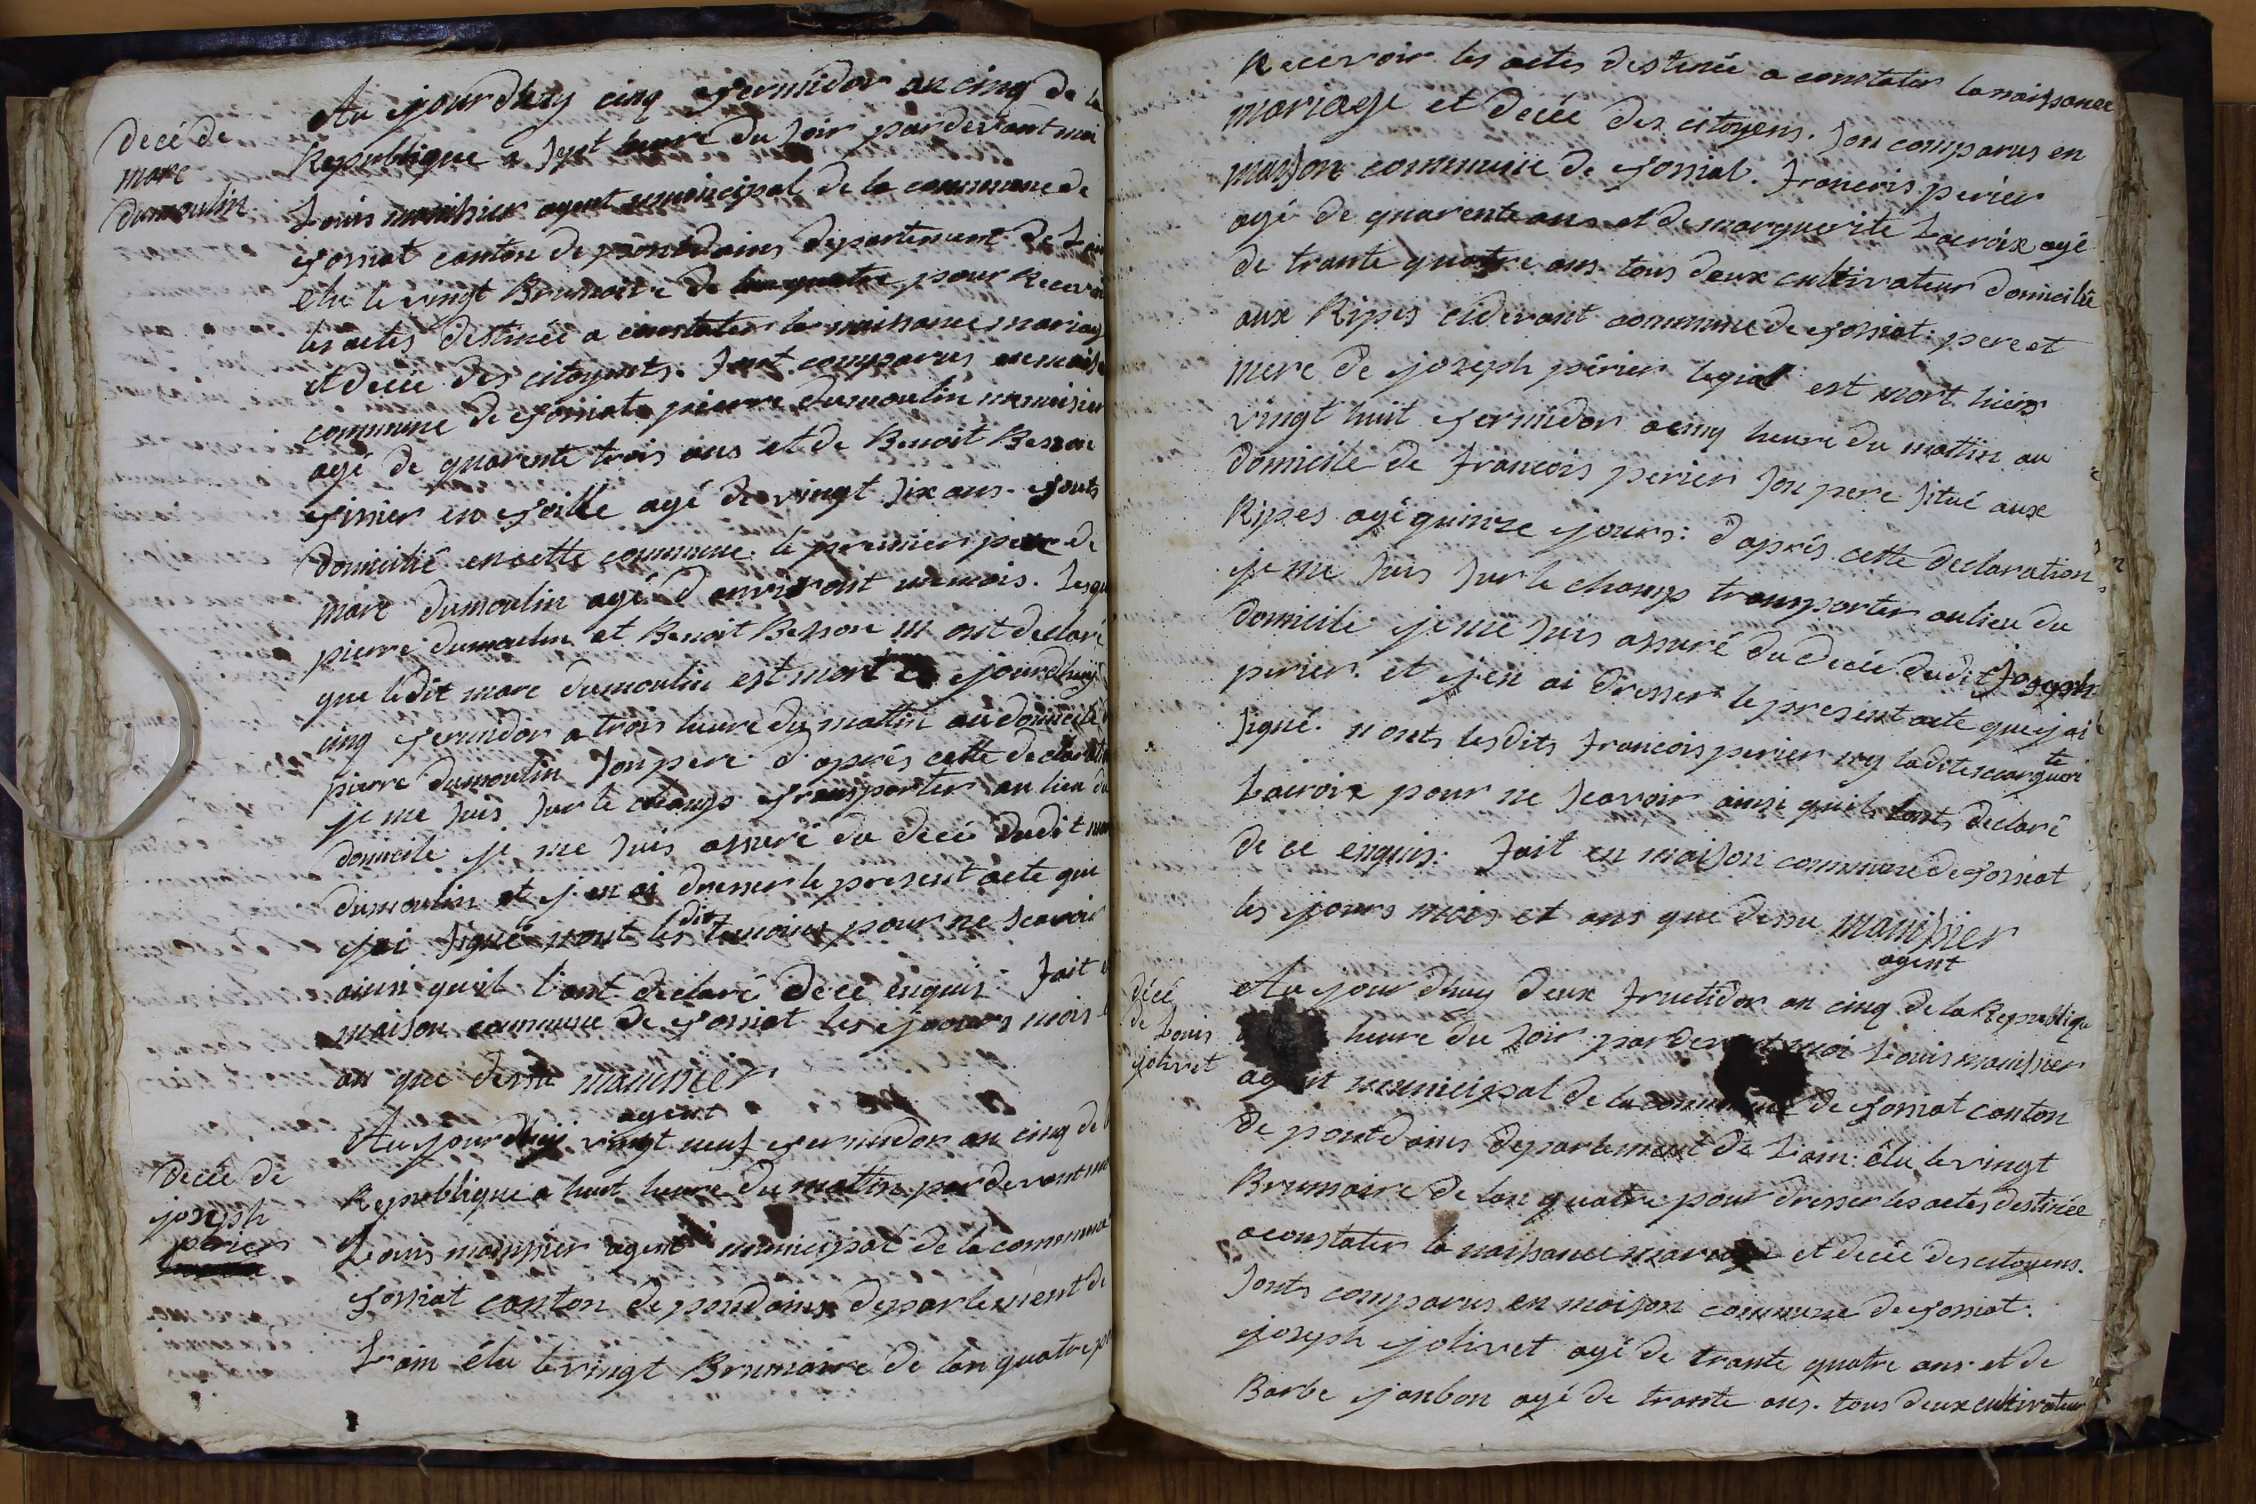 decé de
marc
dumoulin
Au jourdhuy cinq fermidor an cinq de la
Republique a sept heure du soir pardevant moi
Louis manissier agent municipal de la commune de
jossiat canton de pontdains departement de Lain
elu le vingt Brumaire de lan quatre pour Recevoi
les actes destinée a constater la naissance mariage
et decée des citoyents. sont comparus en maiso
commune de jossiat pierre dumoulin menuisier
agé de quarente trois ans et de Benoit Besson
agé de vingt six ans. touts
domicilié en cette commune. le premier pere de
marc dumoulin agé d'environt un mois. Lesqu
pierre dumoulin et Benoit Besson m'ont declaré
que ledit marc dumoulin est mort ce jourdhuy
cinq fermidor a trois heure du mattin au domicile
pierre dumoulin son pere d'aprés cette declaration
je me suis sur le champs transporter au lieu du
domicile je me suis assuré du decé dudit mar
dumoulin et j'en ai dresser le present acte que
j'ai signé nont les dits temoins pour ne scavoir
ainsi quil l'ont declaré de cé enquis. fait en
maison commune de jossiat les jours mois
an que dessu manissier
agent
decée de
joseph
perier
Au jourdhuy vingt neuf fermidor an cinq de
Republique a huit heure du mattin par devant moi
Louis manissier agent municipal de la commune
jossiat canton de pondains departement de
Lain élu le vingt Brumaire de lan quatre po
Recevoir les actes destinée a constater la naissance
mariage et decée des citoyens. son comparus en
maison commune de jossiat. francois perier
agé de quarente ans et de marguerite Lacroix agé
de trante quatre ans tous deux cultivateur domicilié
aux Ripes cidevant commune de jossiat: pere et
mere de joseph périer lequel est mort hiers
vingt huit fermidor a cinq heure du mattin au
domicile de francois perier son pere situé aux
Ripes agé quinze jours: d'aprés cette declaration
je me suis sur le champ transporter au lieu du
domicile je me suis assuré du decée dudit joseph
perier. et j'en ai dresser le present acte que j'ai
signé. n'onts lesdits francois perier ny ladite marguerite
Lacroix pour ne scavoir ainsi quils lonts declaré
de ce enquis: fait en maison commune de jossiat
les jours mois et ans que dessu manissier
agent
décé
de Louis
jolivet
Au jourdhuy deux fructidor an cinq de la Republiqu
heure du soir pardevant moi Louis manissier
agent municipal de la commune de jossiat canton
de pontdains departement de Lain: élu le vingt
Brumaire de lan quatre pour dresser les actes destinée
a constater la naissance mariage et decée des citoyens.
sonts comparus en maison commune de jossiat.
joseph jolivet agé de trante quatre ans et de
Barbe janbon agé de trante ans. tous deux cultivateur